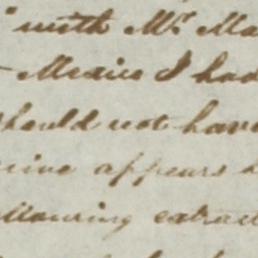 "with Mr Ma
Mexico I had
should not hav
appears
ollowing extrac